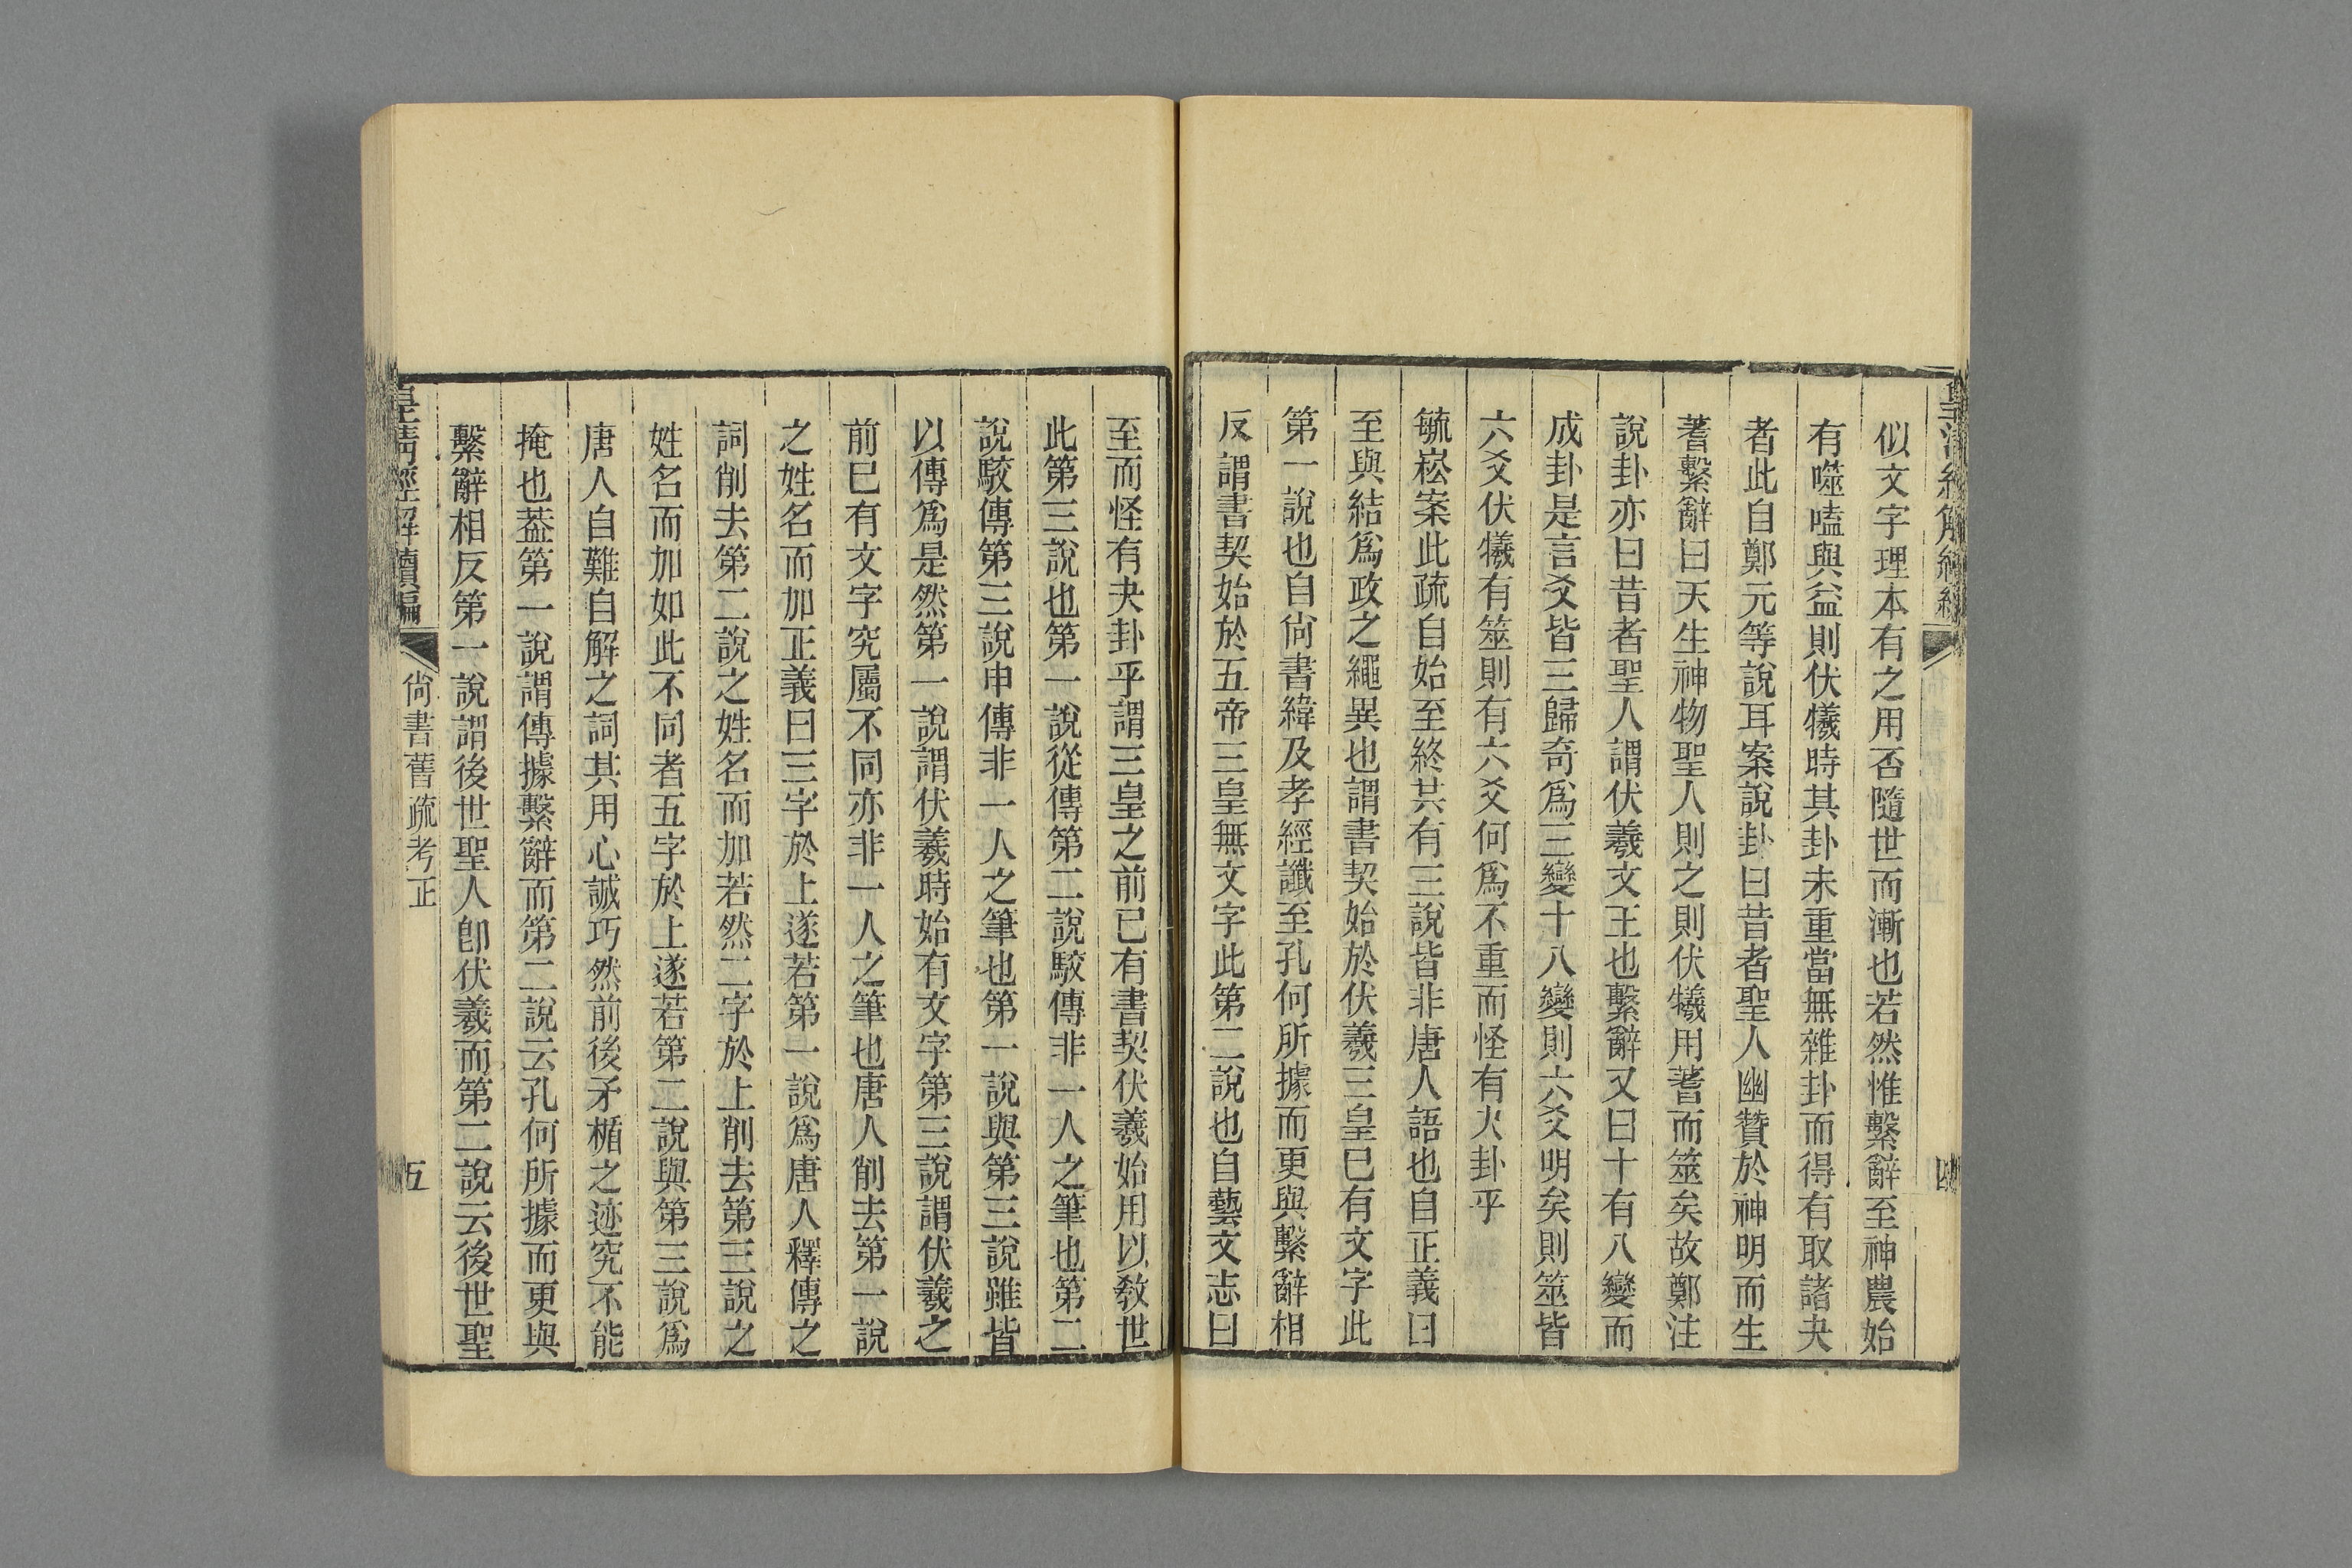 似文字理本有之用否隨世而漸也若然惟繫辭至神農始
有噬嗑與益則伏犧時其卦未重當無雜卦而得有取諸夬
者此自鄭元等說耳案說卦曰昔者聖人幽贊於神明而生
蓍繫辭曰天生神物聖人則之則伏犧用蓍而筮矣故鄭注
說卦亦曰昔者聖人謂伏羲文王也繫辭又曰十有八變而
成卦是言爻皆三歸奇為三變十八變則六爻明矣則筮皆
六爻伏犧有筮則有六爻何為不重而怪有夬卦乎
毓崧案此疏自始至終共有三說皆非唐人語也自正義曰
至與結為政之繩異也謂書契始於伏羲三皇已有文字此
第一說也自尙書緯及孝經讖至孔何所據而更與繫辭相
反謂書契始於五帝三皇無文字此第二說也自藝文志曰
至而怪有夬卦乎謂三皇之前已有書契伏羲始用以敎世
此第三說也第一說從傳第二說駮傳非一人之筆也第二
說駮傳第三說申傳非一人之筆也第一說與第三說雖皆
以傳為是然第一說謂伏羲時始有文字第三說謂伏羲之
前已有文字究屬不同亦非一人之筆也唐人削去第一說
之姓名而加正義曰三字於上遂若第一說為唐人釋傳之
詞削去第二說之姓名而加若然二字於上削去第三說之
姓名而加如此不同者五字於上遂若第二說與第三說為
唐人自難自解之詞其用心誠巧然前後矛楯之迹究不能
掩也葢第一說謂傳據繫辭而第二說云孔何所據而更與
繫辭相反第一說謂後世聖人卽伏羲而第二說云後世聖
皇淸經解續編
尙書舊疏考正
五